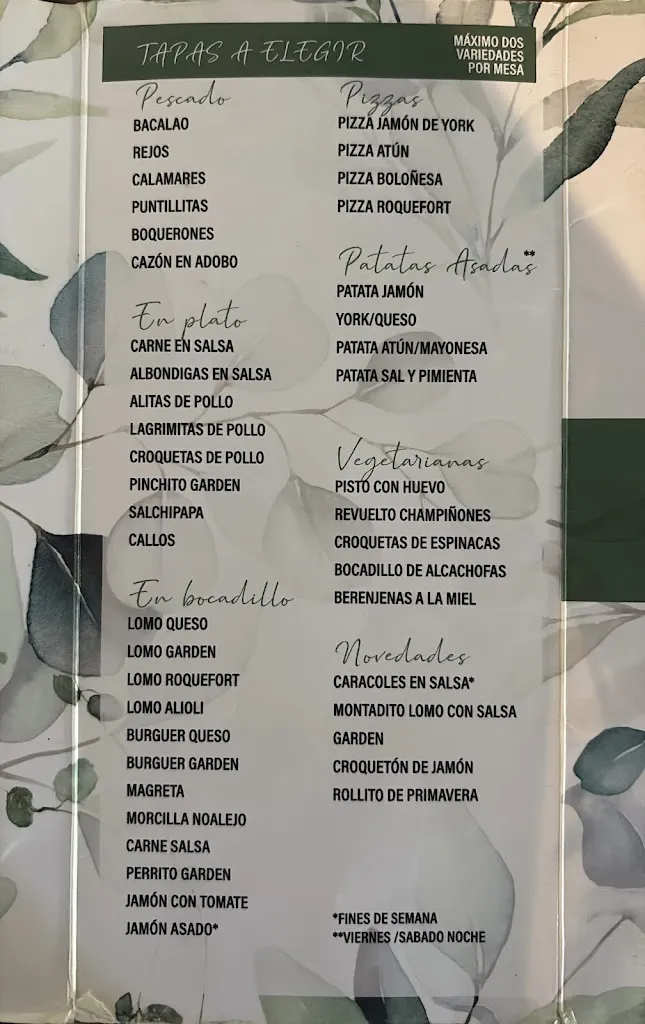 TAPAS A ELEGIR
MÁXIMO DOS
VARIEDADES
POR MESA
Pescado
BACALAO
REJOS
CALAMARES
PUNTILLITAS
BOQUERONES
CAZÓN EN ADOBO
En plato
CARNE EN SALSA
ALBONDIGAS EN SALSA
ALITAS DE POLLO
LAGRIMITAS DE POLLO
CROQUETAS DE POLLO
PINCHITO GARDEN
SALCHIPAPA
CALLOS
En bocadillo
LOMO QUESO
LOMO GARDEN
LOMO ROQUEFORT
LOMO ALIOLI
BURGUER QUESO
BURGUER GARDEN
MAGRETA
MORCILLA NOALEJO
CARNE SALSA
PERRITO GARDEN
JAMÓN CON TOMATE
JAMÓN ASADO*
Pizzas
PIZZA JAMÓN DE YORK
PIZZA ATÚN
PIZZA BOLOÑESA
PIZZA ROQUEFORT
Patatas Asadas**
PATATA JAMÓN
YORK/QUESO
PATATA ATÚN/MAYONESA
PATATA SAL Y PIMIENTA
Vegetarianas
PISTO CON HUEVO
REVUELTO CHAMPIÑONES
CROQUETAS DE ESPINACAS
BOCADILLO DE ALCACHOFAS
BERENJENAS A LA MIEL
Novedades
CARACOLES EN SALSA*
MONTADITO LOMO CON SALSA
GARDEN
CROQUETÓN DE JAMÓN
ROLLITO DE PRIMAVERA
*FINES DE SEMANA
**VIERNES /SABADO NOCHE